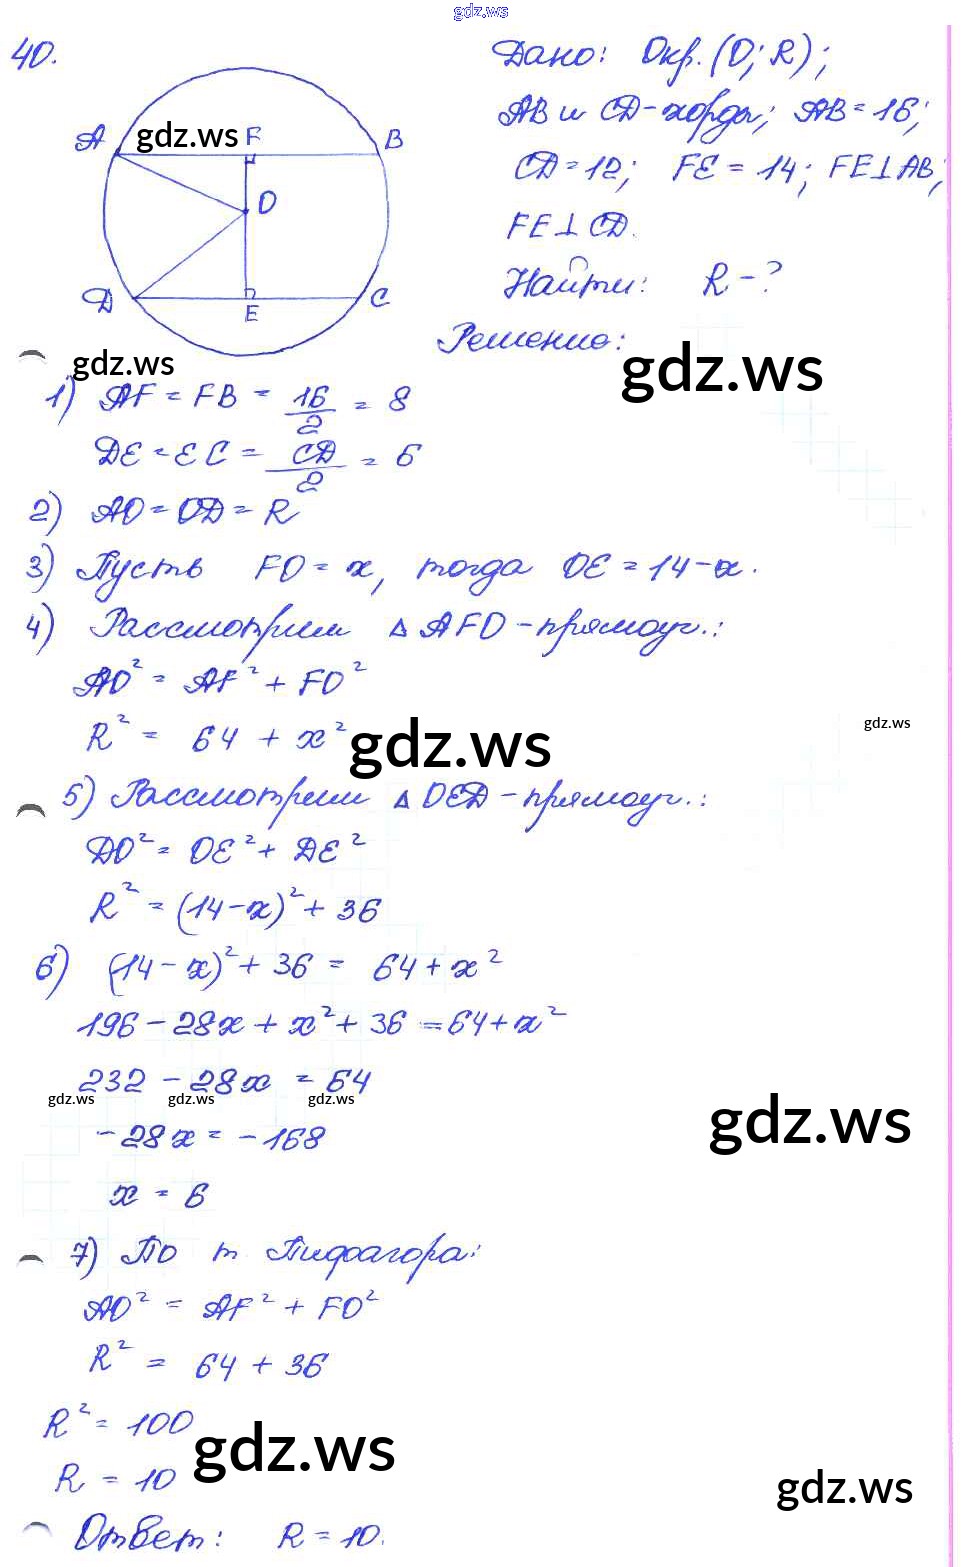 gdz.ws
40.
A gdz.ws F B
O
D E C
Дано: Окр. (O; R);
AB и CD-хорды; AB=16;
CD=12; FE = 14; FE⊥AB;
FE⊥CD.
Найти: R-?
Решение:
gdz.ws
gdz.ws
1) AF = FB = 16/2 = 8
DE = EC = CD/2 = 6
2) AO = OD = R
3) Пусть FO = x, тогда OE = 14-x.
4) Рассмотрим △AFO-прямоуг.:
AO² = AF² + FO²
R² = 64 + x²
gdz.ws
gdz.ws
5) Рассмотрим △OED-прямоуг.:
DO² = OE² + DE²
R² = (14-x)² + 36
6) (14-x)² + 36 = 64 + x²
196 - 28x + x² + 36 = 64 + x²
232 - 28x = 64
gdz.ws gdz.ws gdz.ws
gdz.ws
-28x = -168
x = 6
7) По т Пифагора:
AO² = AF² + FO²
R² = 64 + 36
R² = 100
gdz.ws
R = 10
gdz.ws
Ответ: R = 10.